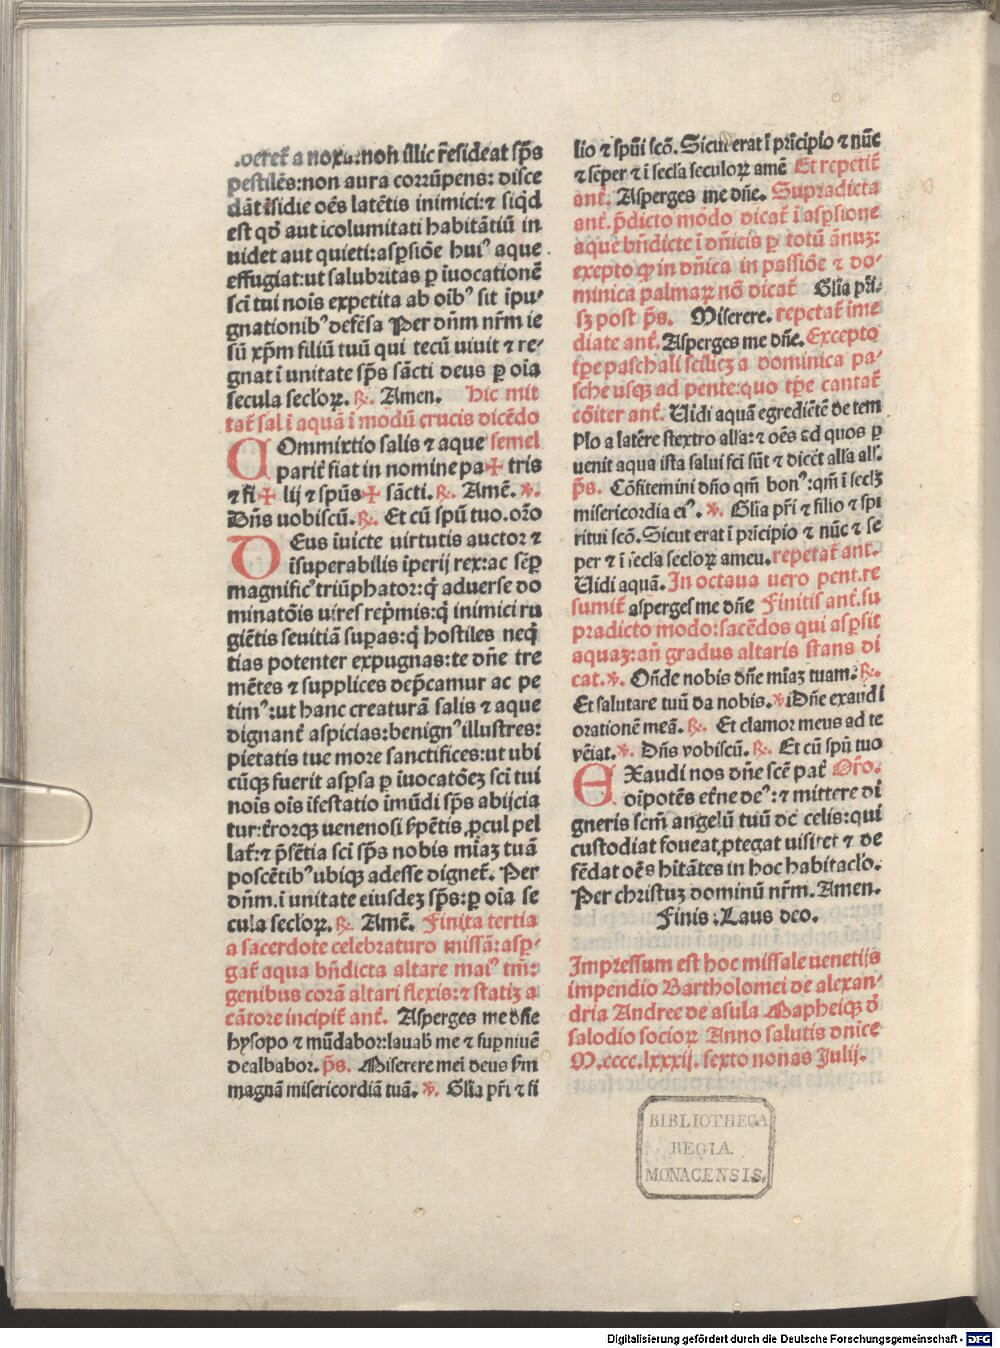 .veret᷑ a noxa:non illic r̃esideat sp̃s
pestilẽs:non aura corrũpens: disce
dãt ĩsidie oẽs latẽtis inimici:⁊ siq̃d
est qd̓ aut ĩcolumitati habitãtiũ in
uidet aut quieti:asp̱siõe huiꝰ aque
effugiat:ut salubritas p̱ ĩuocationẽ
sc̃i tui nois expetita ab oĩbꝰ sit ĩpu-
gnationibꝰ defẽsa Per dñm nr̃m ie
sũ xp̃m filiũ tuũ qui tecũ uiuit ⁊ re-
gnat ĩ unitate sp̃s sãcti deus p̱ oĩa
secula secl̓oꝝ. ℟. Amen. Hic mit
tat᷑ sal ĩ aquã ĩ modũ crucis dicẽdo
COmmixtio salis ⁊ aque semel
parit᷑ fiat in nomine pa✠tris
⁊ fi✠lij ⁊ spũs✠ sãcti. ℟. Amẽ. ℣.
Dñs uobiscũ. ℟. Et cũ spũ tuo. oro̴
DEus ĩuicte uirtutis auctor ⁊
ĩsuperabilis ĩperij rex:ac sẽp̱
magnificꝰ triũphator:q̃ aduerse do
minatõis uires rep̃mis:q̃ inimici ru
giẽtis seuitiã sup̱as:q̃ hostiles neq̃
tias potenter expugnas:te dñe tre
mẽtes ⁊ supplices dep̃camur ac pe
timꝰ:ut hanc creaturã salis ⁊ aque
dignant᷑ aspicias:benignꝰ illustres:
pietatis tue more sanctifices:ut ubi
cũqꝫ fuerit asp̱sa p̱ ĩuocatõeꝫ sc̃i tui
nois ois ĩfestatio ĩmũdi sp̃s abijcia
tur:t᷑rorqꝫ uenenosi s̃pẽtis ꝓcul pel
lat᷑:⁊ p̃sẽtia sc̃i sp̃s nobis mĩaꝫ tuã
poscẽtibꝰ ubiqꝫ adesse dignet᷑. Per
dñm.ĩ unitate eiusdeꝫ sp̃s:p̱ oĩa se
cula secl̓oꝝ. ℟. Amẽ. Finita tertia
a sacerdote celebraturo missã:asp̱-
gat᷑ aqua bñdicta altare maiꝰ tm̃:
genibus corã altari flexis:⁊ statiꝫ a
cãtore incipit᷑ ant᷑. Asperges me dñe
hysopo ⁊ mũdabor:lauab̃ me ⁊ sup̱ niuẽ
dealbabor. p̃s. Miserere mei deus s̃m
magnã misericordiã tuã. ℣. Gl̃ia p̃ri ⁊ fi
lio ⁊ spũi sc̃o. Sicut erat ĩ pr̃icipio ⁊ nũc
⁊ sẽper ⁊ ĩ sec̃la seculoꝝ amẽ Et repetit᷑
ant᷑. Asperges me dñe. Supradicta
ant᷑. p̃dicto modo dicat᷑ ĩ asp̱sione
aque bñdicte ĩ dñicis p̱ totũ ãnuꝫ:
exepto ꝙ in dñica in passiõe ⁊ do-
minica palmaꝝ nõ dicat᷑ Gl̃ia p̃ri.
sꝫ post p̃s. Miserere. repetat᷑ ĩme
diate ant᷑. Asperges me dñe. Excepto
tp̃e paschali scilicꝫ a dominica pa-
sche usqꝫ ad pente:quo tp̃e cantat᷑
cõiter ant᷑. Uidi aquã egrediẽtẽ de tem
plo a latere dextro alla:⁊ oẽs ad quos p̱
uenit aqua ista salui fc̃i sũt ⁊ dicẽt alla all̓.
p̃s. Cõfitemini dño qm̃ bonꝰ:qm̃ ĩ secl̓ꝫ
misericordia eiꝰ. ℣. Gl̃ia p̃ri ⁊ filio ⁊ spi
ritui sc̃o. Sicut erat ĩ pr̃icipio ⁊ nũc ⁊ se
per ⁊ ĩ sec̃la secl̓oꝝ ameu. repetat᷑ ant᷑.
Uidi aquã. In octaua uero pent.re
sumit᷑ asperges me dñe Finitis ant᷑.su
pradicto modo:sacẽdos qui asp̱sit
aquaꝫ:añ gradus altaris stans di
cat. ℣. Oñde nobis dñe mĩaꝫ tuam. ℟.
Et salutare tuũ da nobis. ℣. Dñe exaudi
orationẽ meã. ℟. Et clamor meus ad te
vẽiat. ℣. Dñs vobiscũ. ℟. Et cũ spũ tuo
EXaudi nos dñe sc̃e pat᷑ Or̃o.
oĩpotẽs et᷑ne deꝰ:⁊ mittere di
gneris sc̃m angelũ tuũ de celis:qui
custodiat foueat,ꝓtegat uisitet ⁊ de
fẽdat oẽs hĩtãtes in hoc habitacl̓o.
Per christuꝫ dominũ nr̃m. Amen.
Finis : Laus deo.
Impressum est hoc missale uenetijs
impendio Bartholomei de alexan-
dria Andree de asula Mapheiqꝫ d̓
salodio socioꝝ Anno salutis dnice
M.cccc.lxxxij. sexto nonas Julij.
BIBLIOTHECA
REGIA
MONACENSIS.
Digitalisierung gefördert durch die Deutsche Forschungsgemeinschaft - DFG